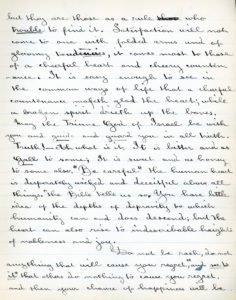 but they are those as a rule who
trouble to find it. Satisfaction will not
come to one with folded arms and of
glowing tendencies, it comes most to those
of a cheerful heart and cheery counten-
ance. It is easy enough to see in
the common ways of life that a cheerful
countenance maketh glad the heart; while
a broken spirit drieth up the bones.
May the Triune God of Israel be with
you and guide and guard you in all truth.
Truth!—Ah what is it. It is bitter and as
gall to some; It is sweet and as honey
to some also. "Be careful" The human heart
is desperately wicked and deceitful above all
things." Bible tells us so & we can have but little
idea of the depths of depravity to which
humanity can and does descend; but the
heart can also rise to indescribable heights
of nobleness and joy.
Do not be rash, do not
anything that will cause you regret, "and see to
it" that others do nothing to cause you regret,
and then your chance of happiness will be